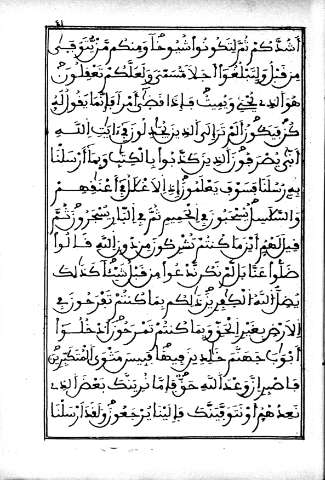 أشدكم ثم لتكونوا شيوخا ومنكم من يتوفى
من قبل ولتبلغوا أجلا مسمى ولعلكم تعقلون
هو الذي يحي ويميت فإذا قضى أمرا فإنما يقول له
كن فيكون ألم تر إلى الذين يجدلون في ءايت الله
أنى يصرفون الذين كذبوا بالكتب وبما أرسلنا
به رسلنا فسوف يعلمون إذ الأغلل في أعنقهم
والسلسل يسحبون في الحميم ثم في النار يسجرون ثم
قيل لهم أين ما كنتم تشركون من دون الله قالوا
ضلوا عنا بل لم نكن ندعوا من قبل شيئا كذلك
يضل الله الكفرين ذلكم بما كنتم تفرحون في
الأرض بغير الحق وبما كنتم تمرحون ادخلوا
أبوب جهنم خلدين فيها فبيس مثوى المتكبرين
فاصبر إن وعد الله حق فإما نرينك بعض الذي
نعدهم أو نتوفينك فإلينا يرجعون ولقد أرسلنا